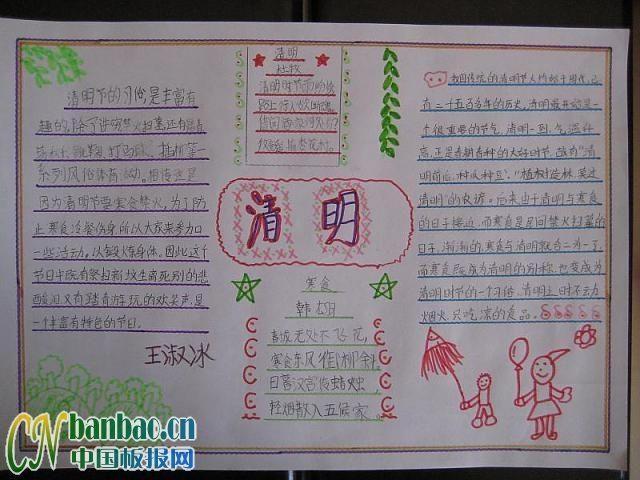 清明节的习俗是丰富有
趣的,除了讲究禁火扫墓,还有踏青
荡秋千、蹴鞠、打马球、插柳等一
系列风俗体育活动。相传这是
因为清明节要寒食禁火,为了防
止寒食冷餐伤身,所以大家来参加
一些活动,以锻炼身体。因此这个
节日中既有祭扫新坟生离死别的悲
酸泪,又有踏青游玩的欢笑声,是
一个丰富有特色的节日。
王淑冰
清明
杜牧
清明时节雨纷纷
路上行人欲断魂
借问酒家何处有
牧童遥指杏花村
清 明
寒食
韩翃
春城无处不飞花
寒食东风御柳斜
日暮汉宫传蜡烛
轻烟散入五侯家
我国传统的清明节大约始于周代,已
有二千五百多年的历史。清明最开始是一
个很重要的节气,清明一到,气温升
高,正是春耕春种的大好时节,故有“清
明前后,种瓜种豆”。“植树造林,莫过
清明”的农谚。后来由于清明与寒食
的日子接近,而寒食是民间禁火扫墓的
日子,渐渐的,寒食与清明就合二为一了,
而寒食既成为清明的别称,也变成为
清明时节的一个习俗,清明之时不动
烟火,只吃凉的食品。
CN banbao.cn
中国板报网